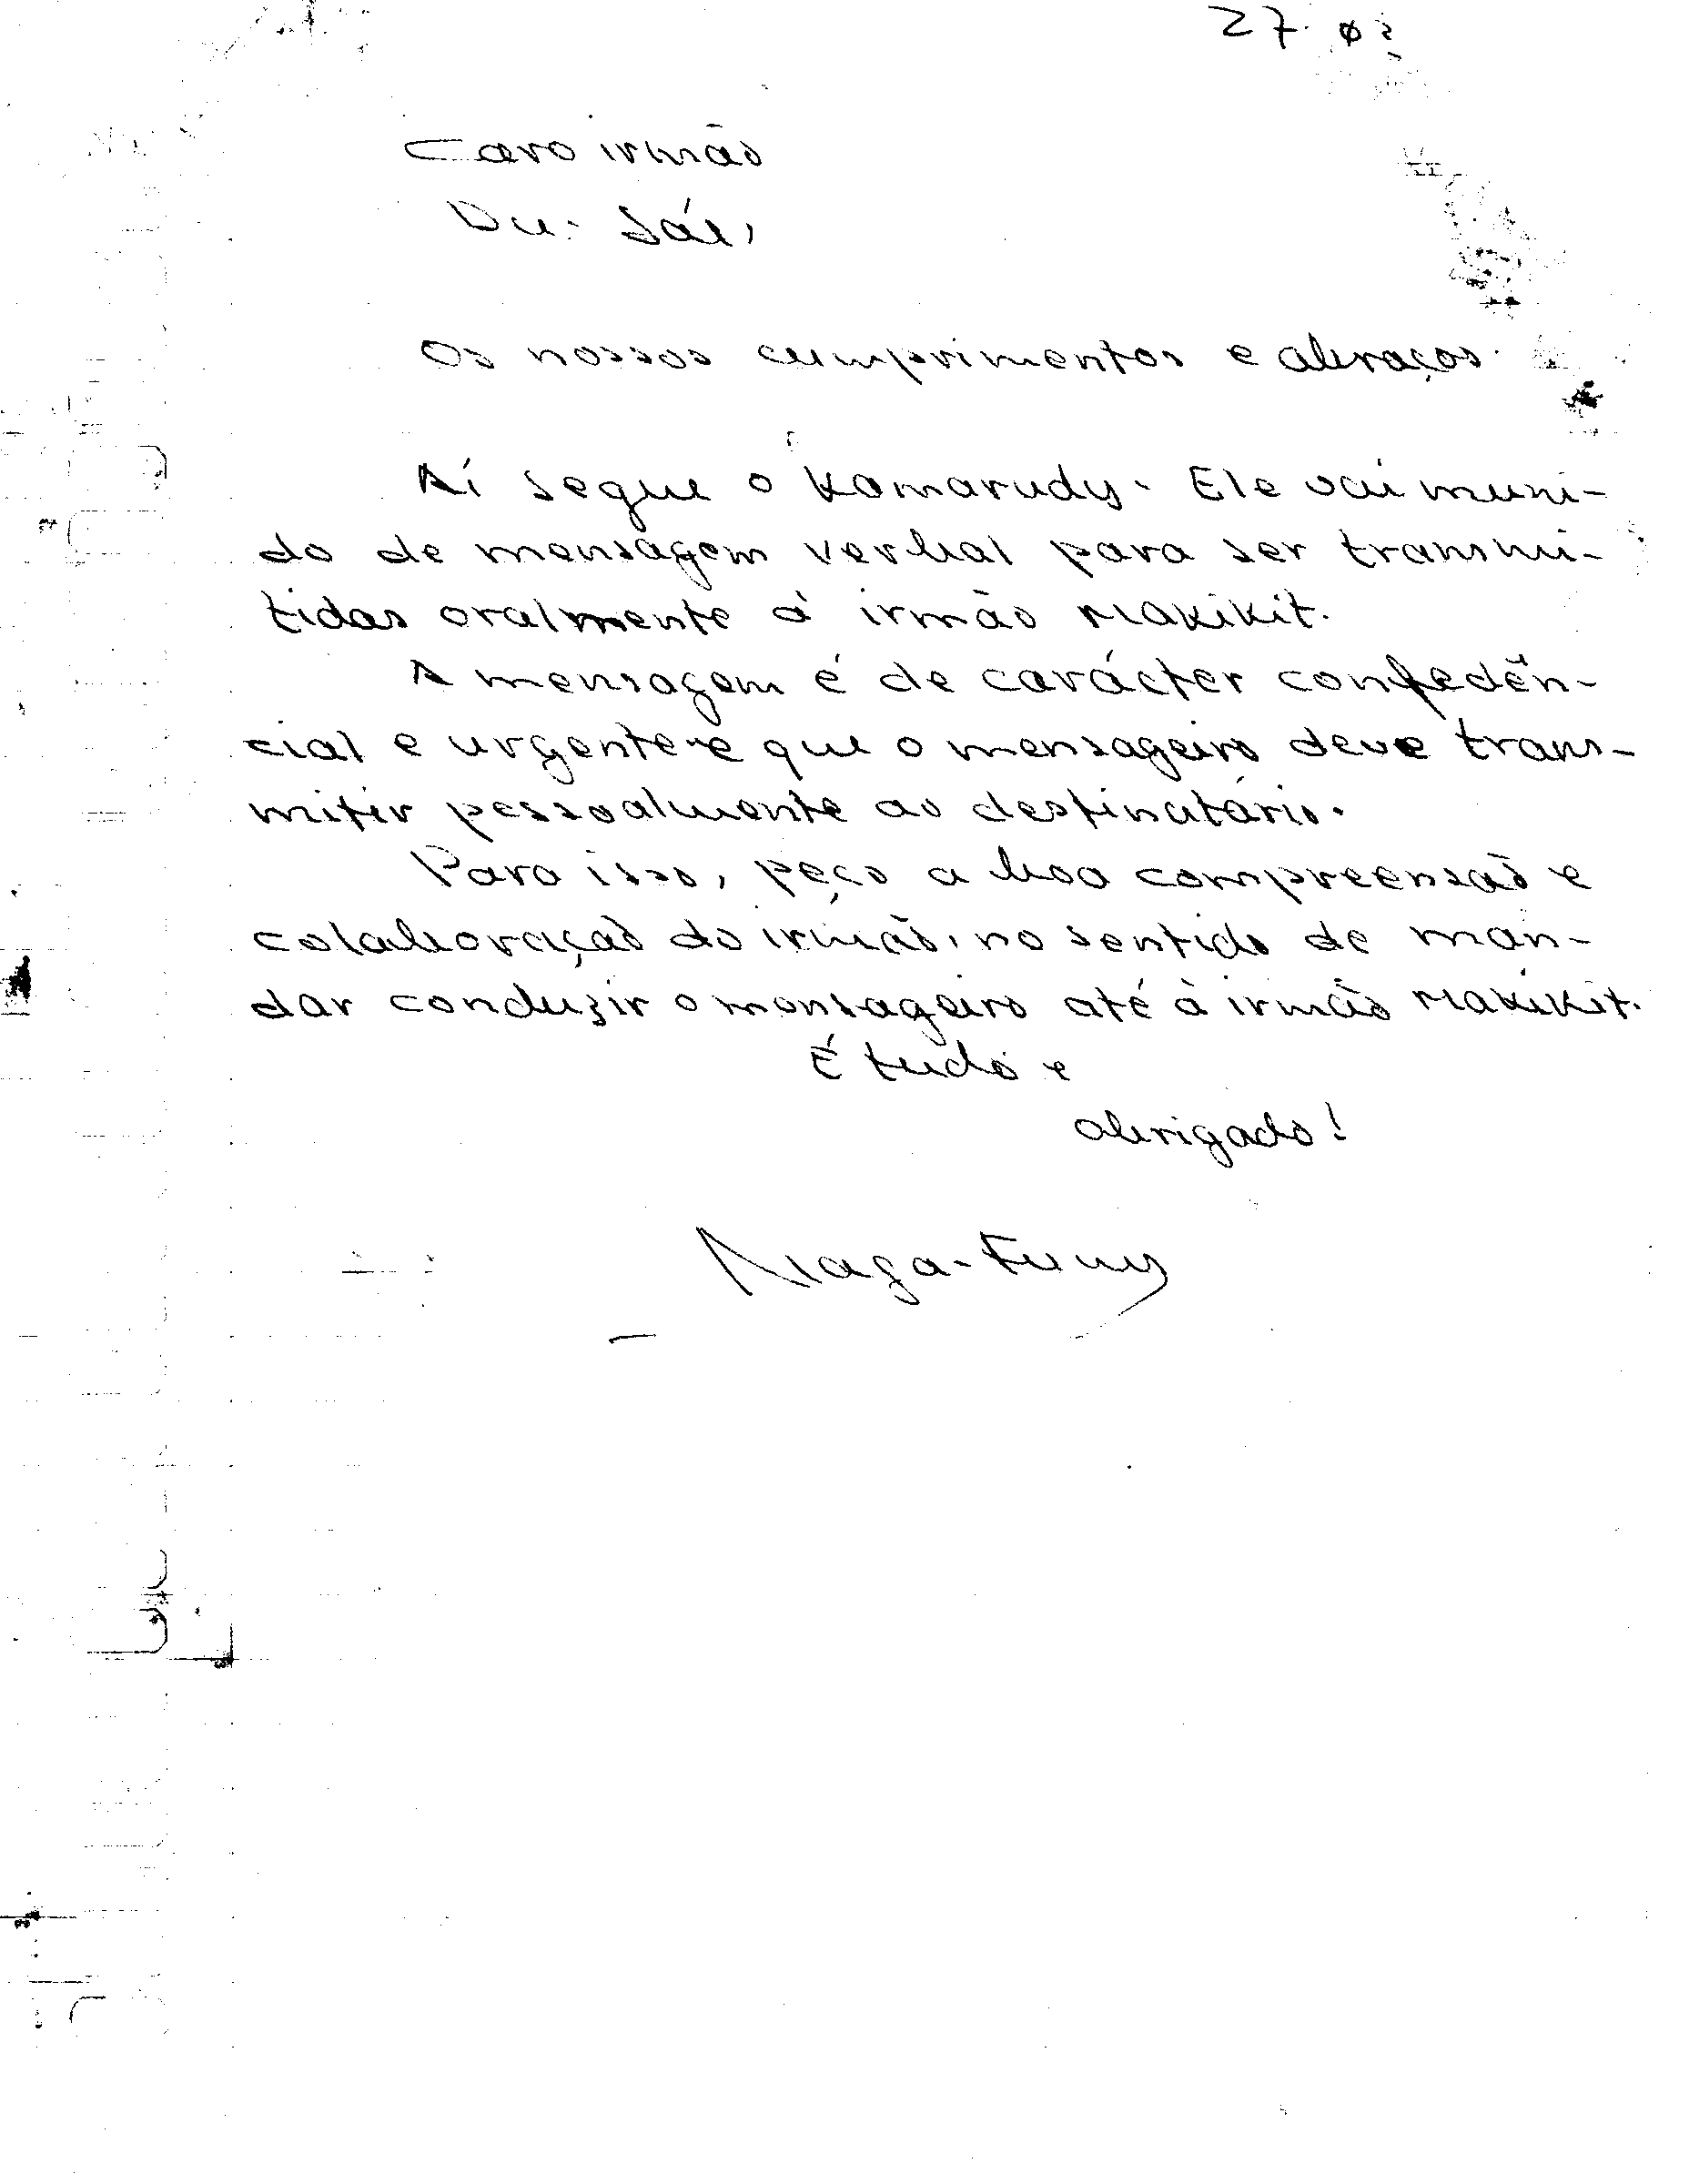 27. 02
Caro irmão
Du. Sáu,
Os nossos cumprimentos e abraços.
Aí segue o Kamarudy. Ele vai muni-
do de mensagem verbal para ser transmi-
tidas oralmente à irmão Makikit.
A mensagem é de carácter confedên-
cial e urgente e que o mensageiro deve trans-
mitir pessoalmente ao destinatário.
Para isso, peço a boa compreensão e
colaboração do irmão, no sentido de man-
dar conduzir o mensageiro até à irmão Makikit.
É tudo e
obrigado!